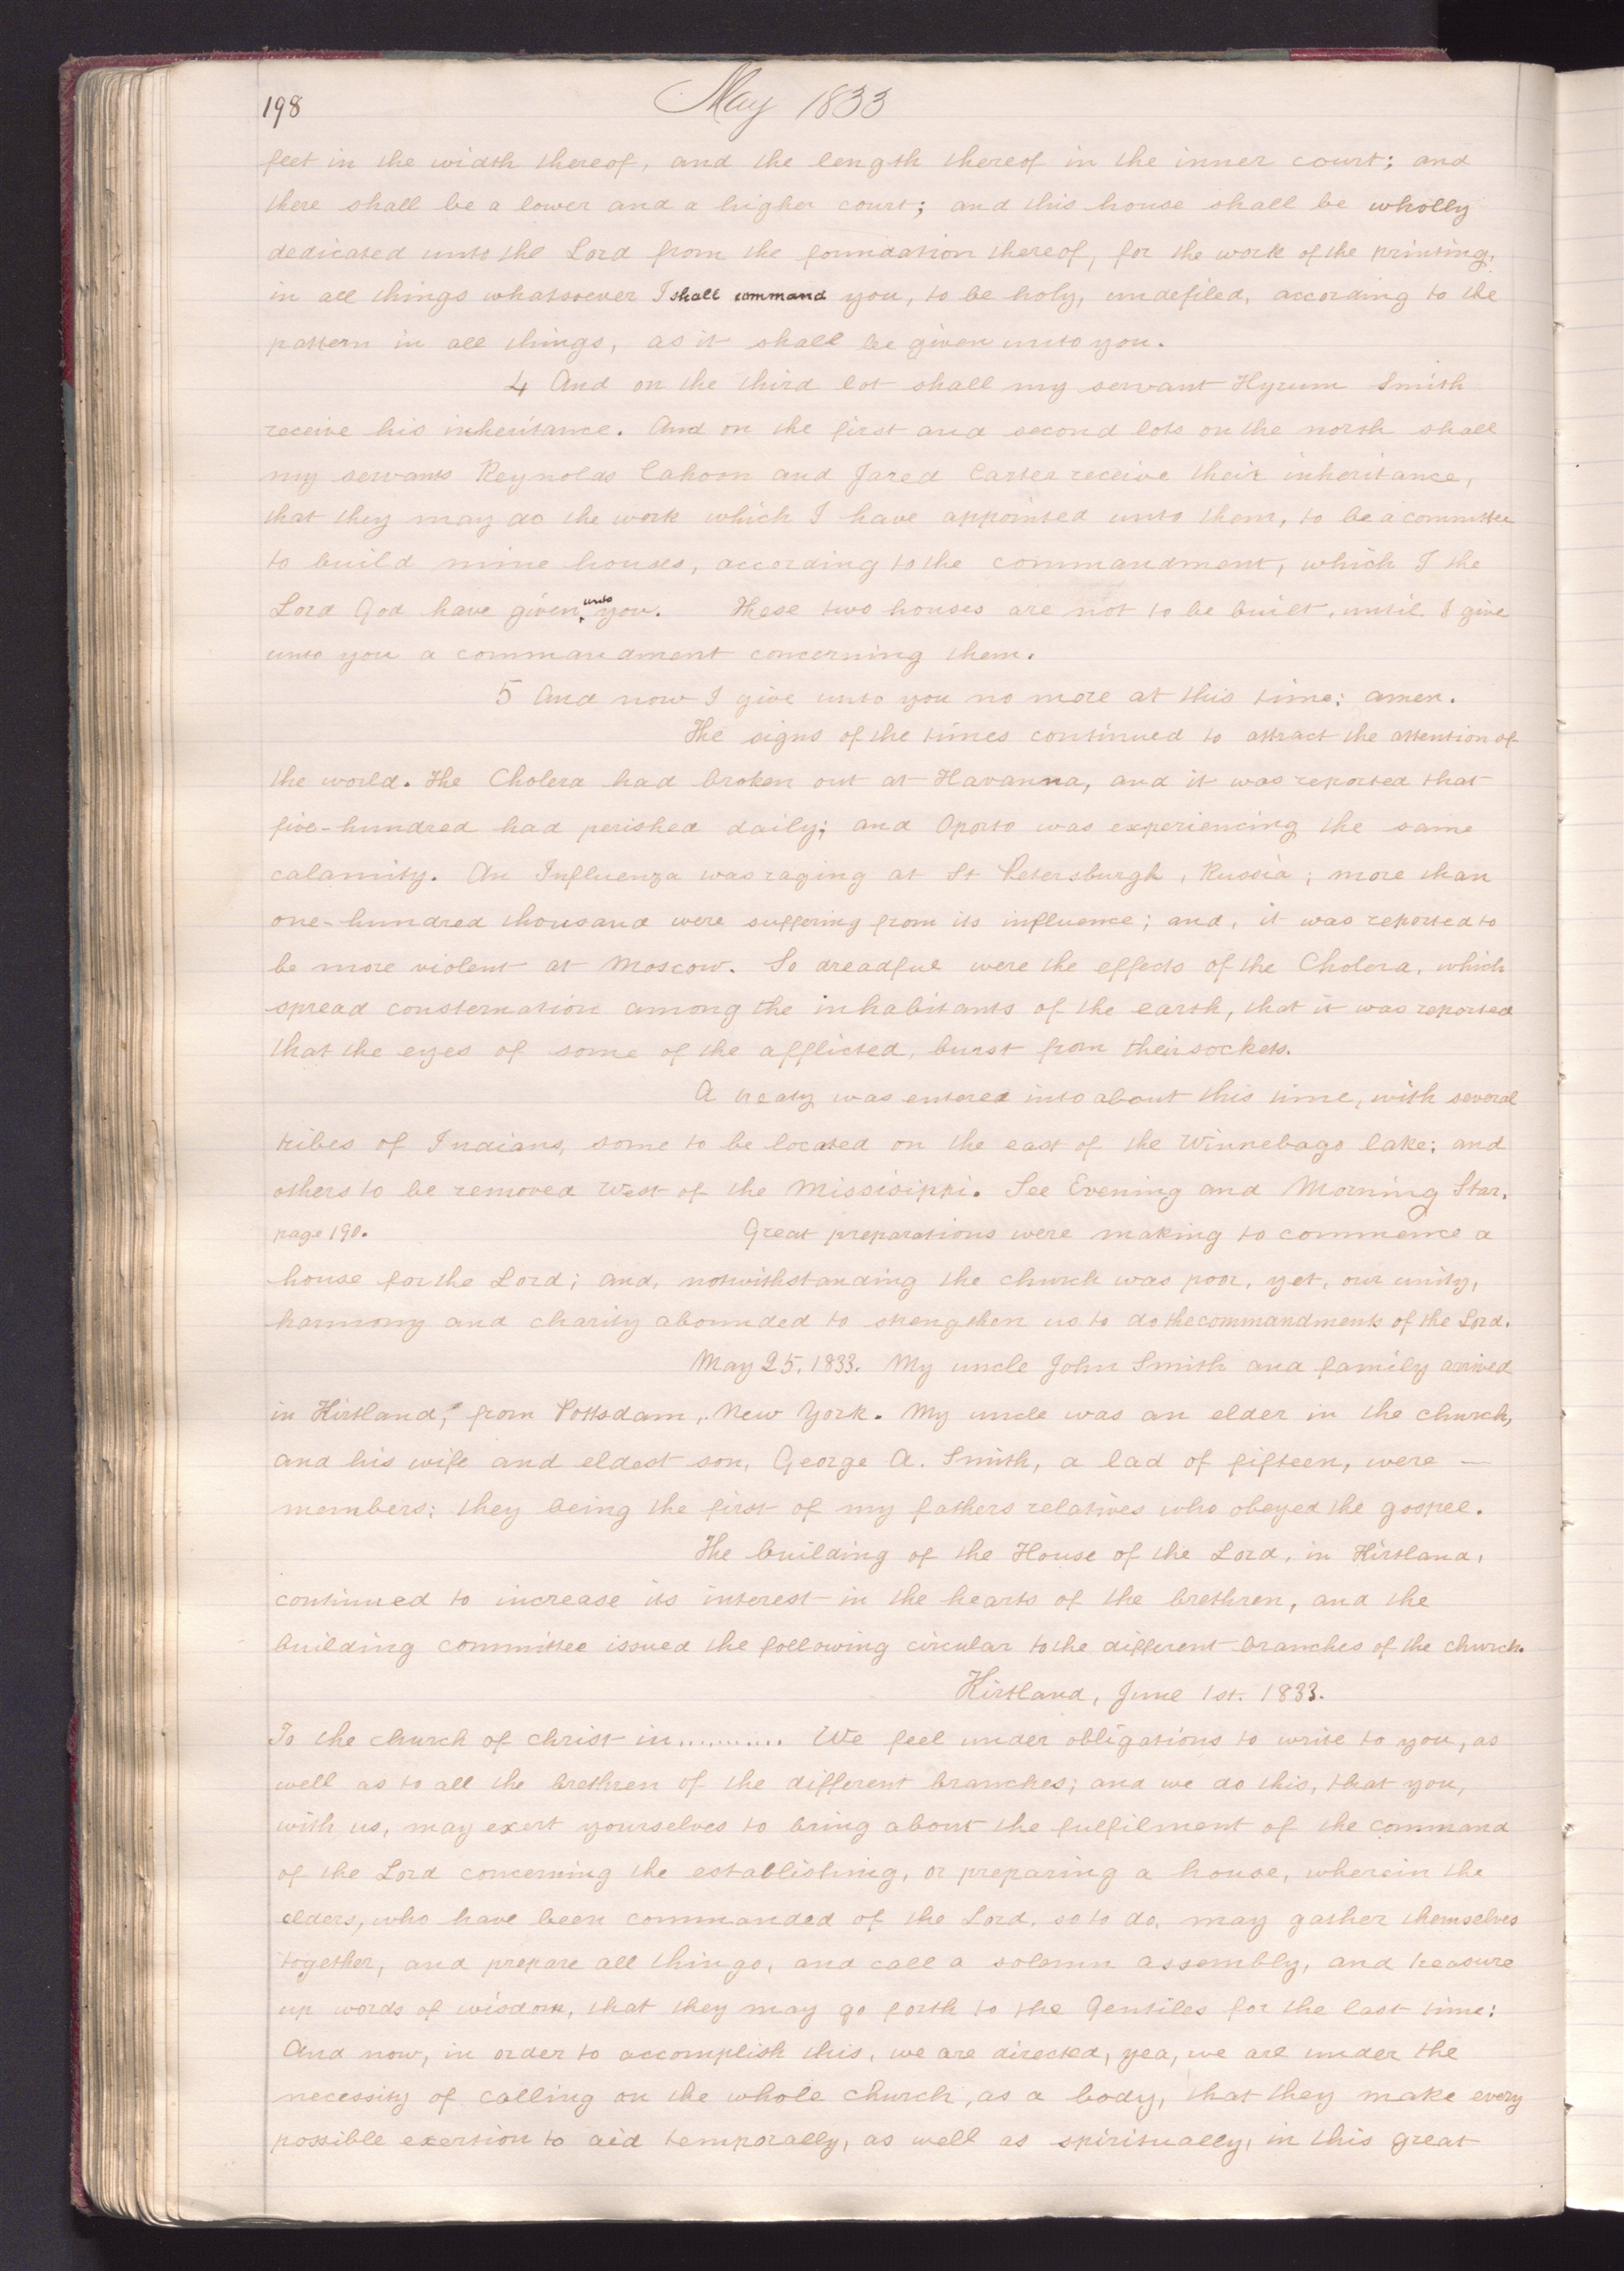 198
May 1833
feet in the width thereof, and the length thereof in the inner court; and
there shall be a lower and a higher court; and this house shall be wholly
dedicated unto the Lord from the foundation thereof, for the work of the printing,
in all things whatsoever I shall command you, to be holy, undefiled, according to the
pattern in all things, as it shall be given unto you.
4 And on the third lot shall my servant Hyrum Smith
receive his inheritance. And on the first and second lots on the north shall
my servants Reynolds Cahoon and Jared Carter receive their inheritance,
that they may do the work which I have appointed unto them, to be a committee
to build mine houses, according to the commandment, which I the
Lord God have given unto you. These two houses are not to be built, until I give
unto you a commandment concerning them.
5 And now I give unto you no more at this time: amen.
The signs of the times continued to attract the attention of
the world. The Cholera had broken out at Havanna, and it was reported that
five-hundred had perished daily; and Oporto was experiencing the same
calamity. An Influenza was raging at St Petersburgh, Russia; more than
one-hundred thousand were suffering from its influence; and, it was reported to
be more violent at Moscow. So dreadful were the effects of the Cholera, which
spread consternation among the inhabitants of the earth, that it was reported
that the eyes of some of the afflicted, burst from their sockets.
A treaty was entered into about this time, with several
tribes of Indians, some to be located on the east of the Winnebago lake; and
others to be removed West of the Missisippi. See Evening and Morning Star.
page 190. Great preparations were making to commence a
house for the Lord; and, notwithstanding the church was poor, yet, our unity,
harmony and charity abounded to strengthen us to do the commandments of the Lord.
May 25, 1833. My uncle John Smith and family arrived
in Kirtland, from Pottsdam, New York. My uncle was an elder in the church,
and his wife and eldest son, George A. Smith, a lad of fifteen, were —
members; they being the first of my fathers relatives who obeyed the gospel.
The building of the House of the Lord, in Kirtland,
continued to increase its interest in the hearts of the brethren, and the
building committee issued the following circular to the different branches of the church.
Kirtland, June 1st. 1833.
To the church of christ in........... We feel under obligations to write to you, as
well as to all the brethren of the different branches; and we do this, that you,
with us, may exert yourselves to bring about the fulfilment of the command
of the Lord concerning the establishing, or preparing a house, wherein the
elders, who have been commanded of the Lord, so to do, may gather themselves
together, and prepare all things, and call a solemn assembly, and treasure
up words of wisdom, that they may go forth to the Gentiles for the last time:
And now, in order to accomplish this, we are directed, yea, we are under the
necessity of calling on the whole church, as a body, that they make every
possible exertion to aid temporally, as well as spiritually, in this great